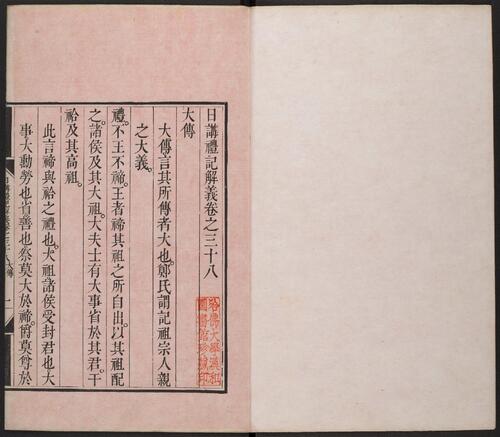 日講禮記解義卷之三十八
大傳
大傳言其所傳者大也。鄭氏謂記祖宗人親
之大義。
禮。不王不禘。王者禘其祖之所自出。以其祖配
之。諸侯及其大祖。大夫士有大事省於其君。干
祫及其高祖。
此言禘與祫之禮也。大祖諸侯受封君也大
事大勳勞也省善也祭莫大於禘。爵莫尊於